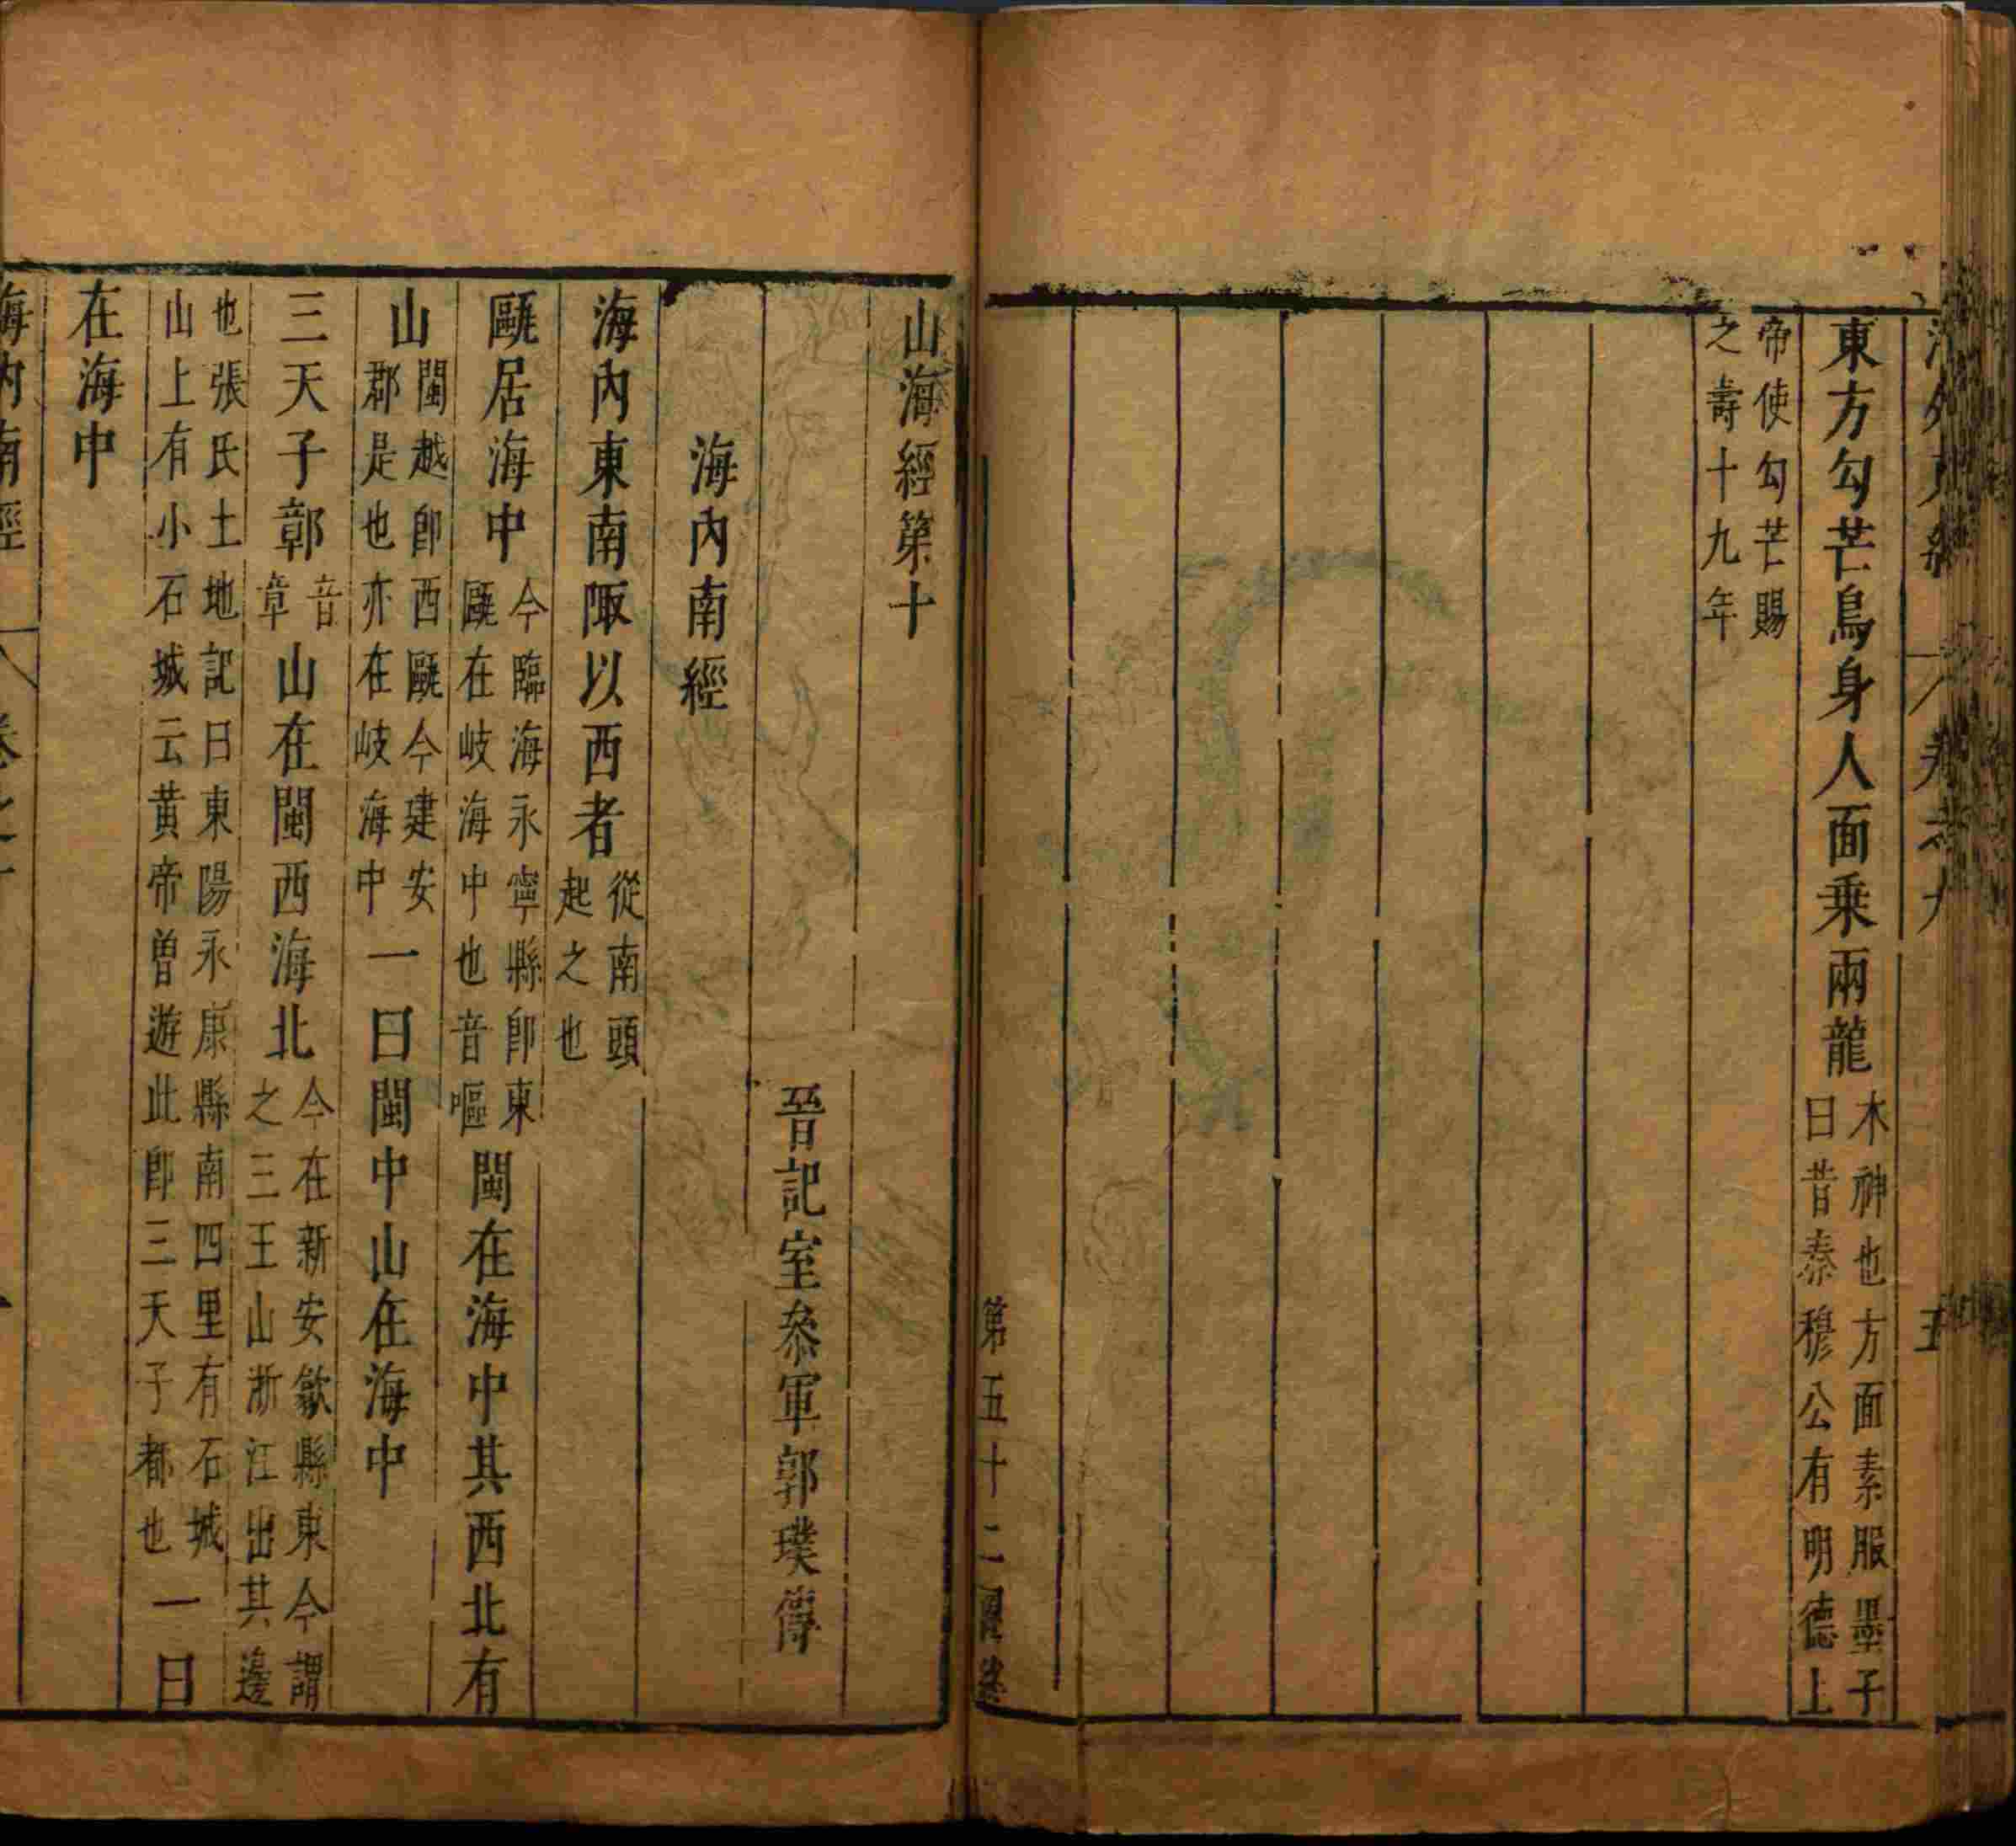 東方勾芒鳥身人面乗兩龍木神也方面素服墨子曰昔秦穆公有明德上
帝使勾芒賜之壽十九年
第五十二
山海經第十
晉記室叅軍郭璞傳
海內南經
海內東南陬以西者從南頭起之也
甌居海中今臨海永寧縣卽東甌在岐海中也音嘔閩在海中其西北有
山閩越卽西甌今建安郡是也亦在岐海中一曰閩中山在海中
三天子鄣音章山在閩西海北今在新安歙縣東今謂之三王山浙江出其邊
也張氏土地記曰東陽永康縣南四里有石城山上有小石城云黃帝曽遊此卽三天子都也一曰
在海中
海內南經